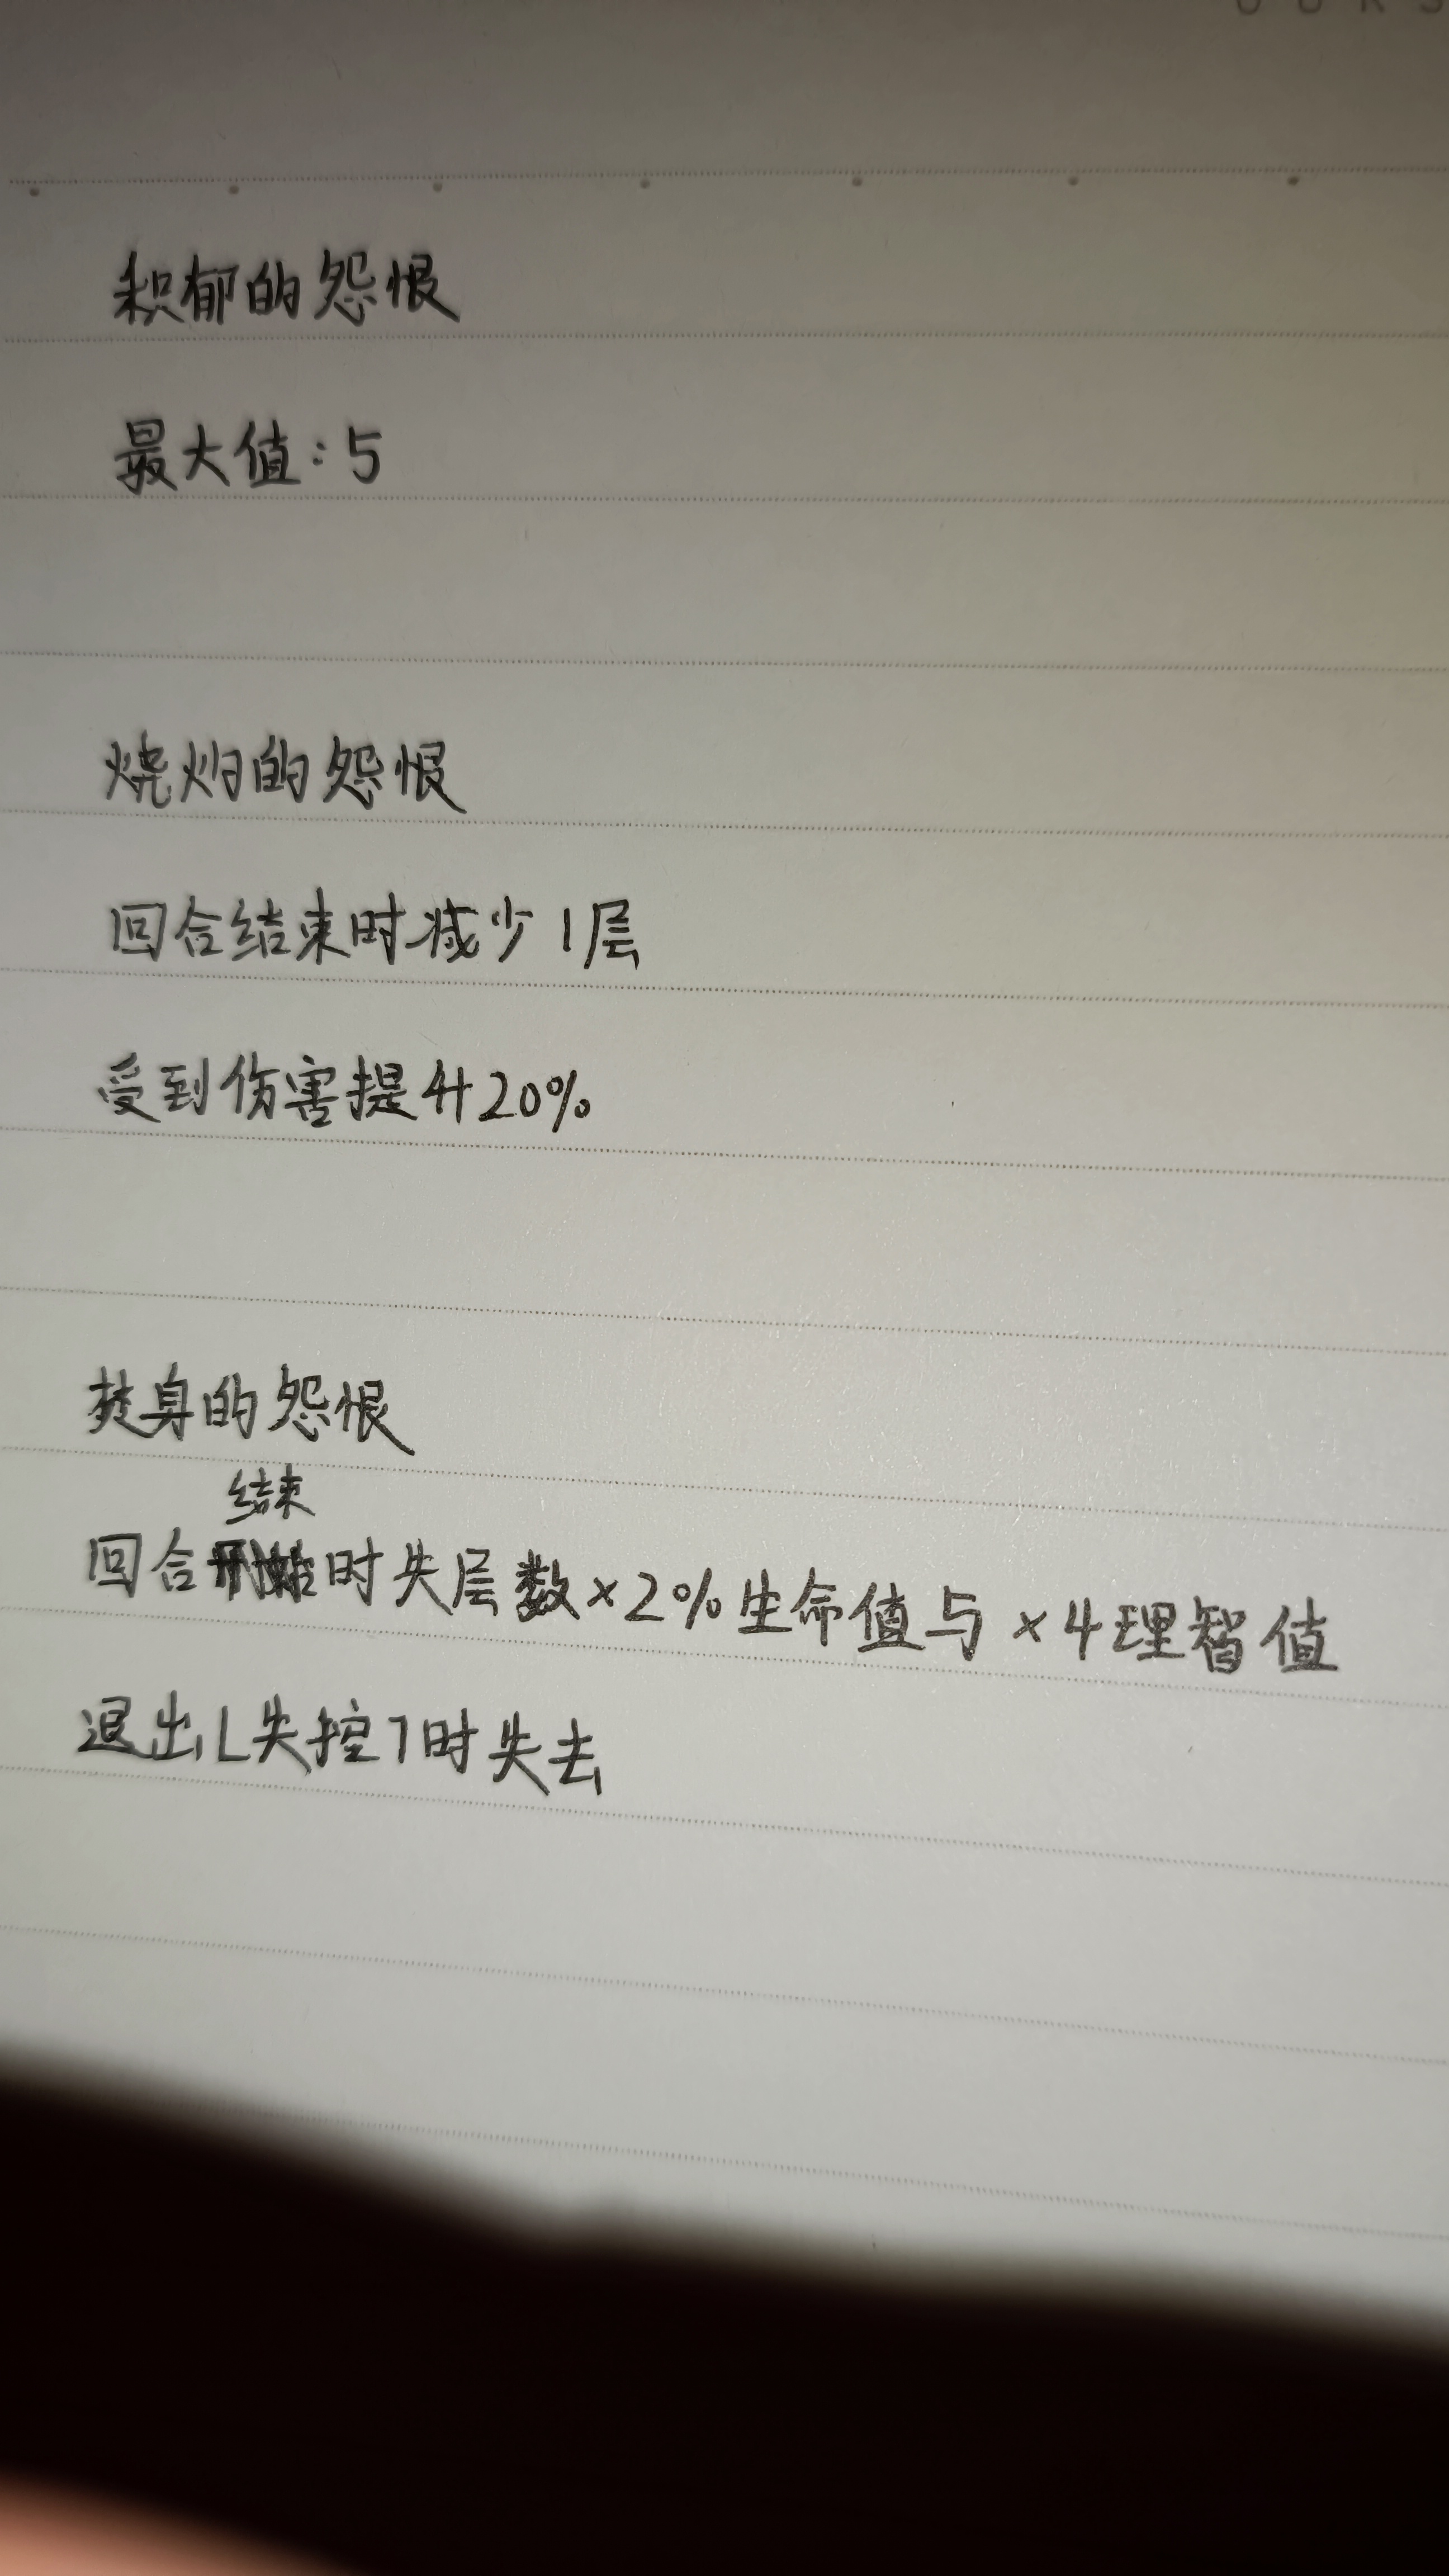 积郁的怨恨
最大值:5
烧灼的怨恨
回合结束时减少1层
受到伤害提升20%
焚身的怨恨
结束
回合时失层数×2%生命值与×4理智值
退出[失控]时失去